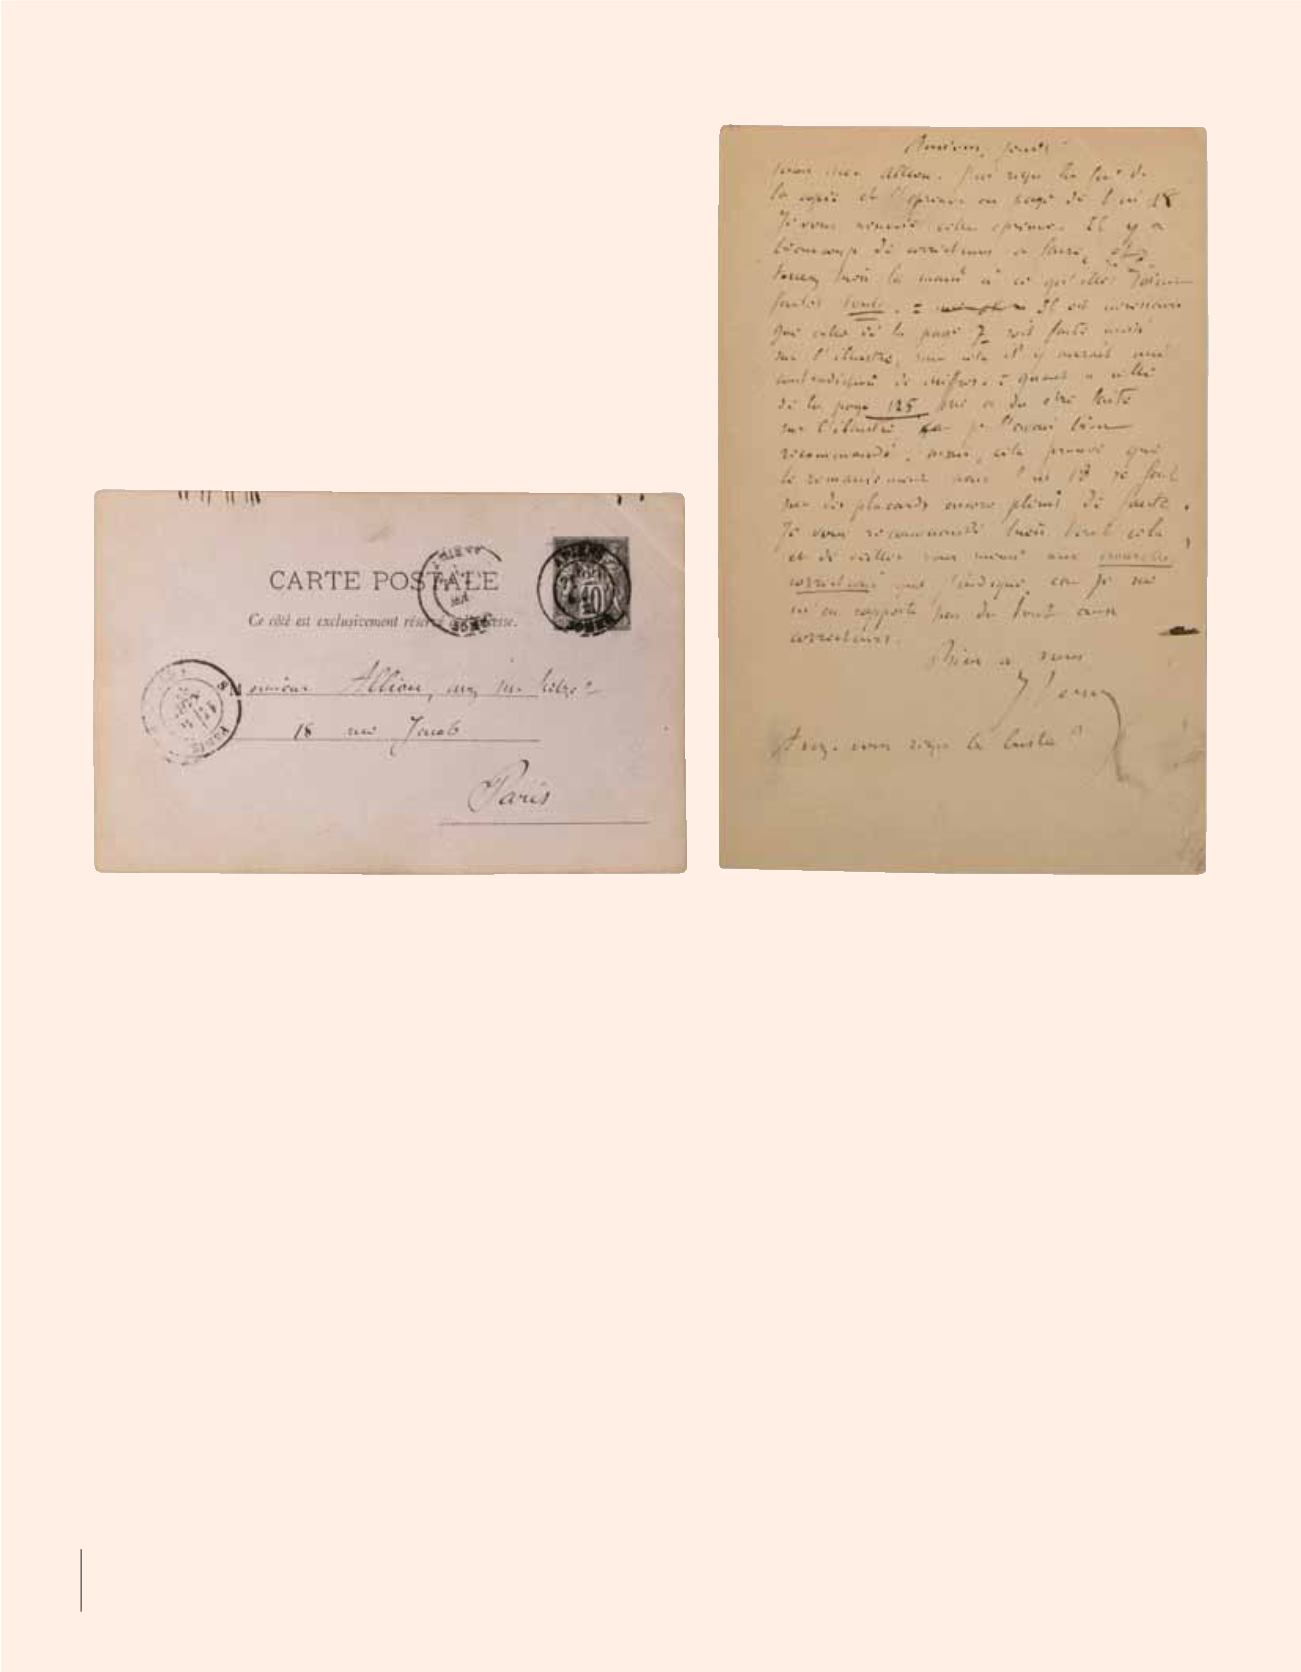 CARTE POSTALE
Ce côté est exclusivement réservé à l'adresse.
AMIENS
SOMME
PARIS
10
Monsieur Allion, chez Mr Hetzel
18 rue Jacob
Paris
Amiens, jeudi
mon cher Allion. J'ai reçu la fin de
la copie et l'épreuve en page de l'in 18
Je vous renvoie cette épreuve. Il y a
beaucoup de corrections à faire,
tenez bien la main à ce qu'elles soient
faites toutes. Il est nécessaire
que celle de la page 7 soit faite aussi
sur l'illustré, sans cela il y aurait une
contradiction de chiffres. = quant à celle
de la page 125 qui a du être faite
sur l'illustré je l'avais bien
recommandé, mais, cela prouve que
le remaniement pour l'in 18 se fait
sur des placards encore pleins de fautes.
Je vous recommande bien tout cela
et de veiller vous même aux nouvelles
corrections que j'indique, car je ne
m'en rapporte pas du tout aux
correcteurs.
Bien à vous
J Verne
Avez-vous reçu le buste?